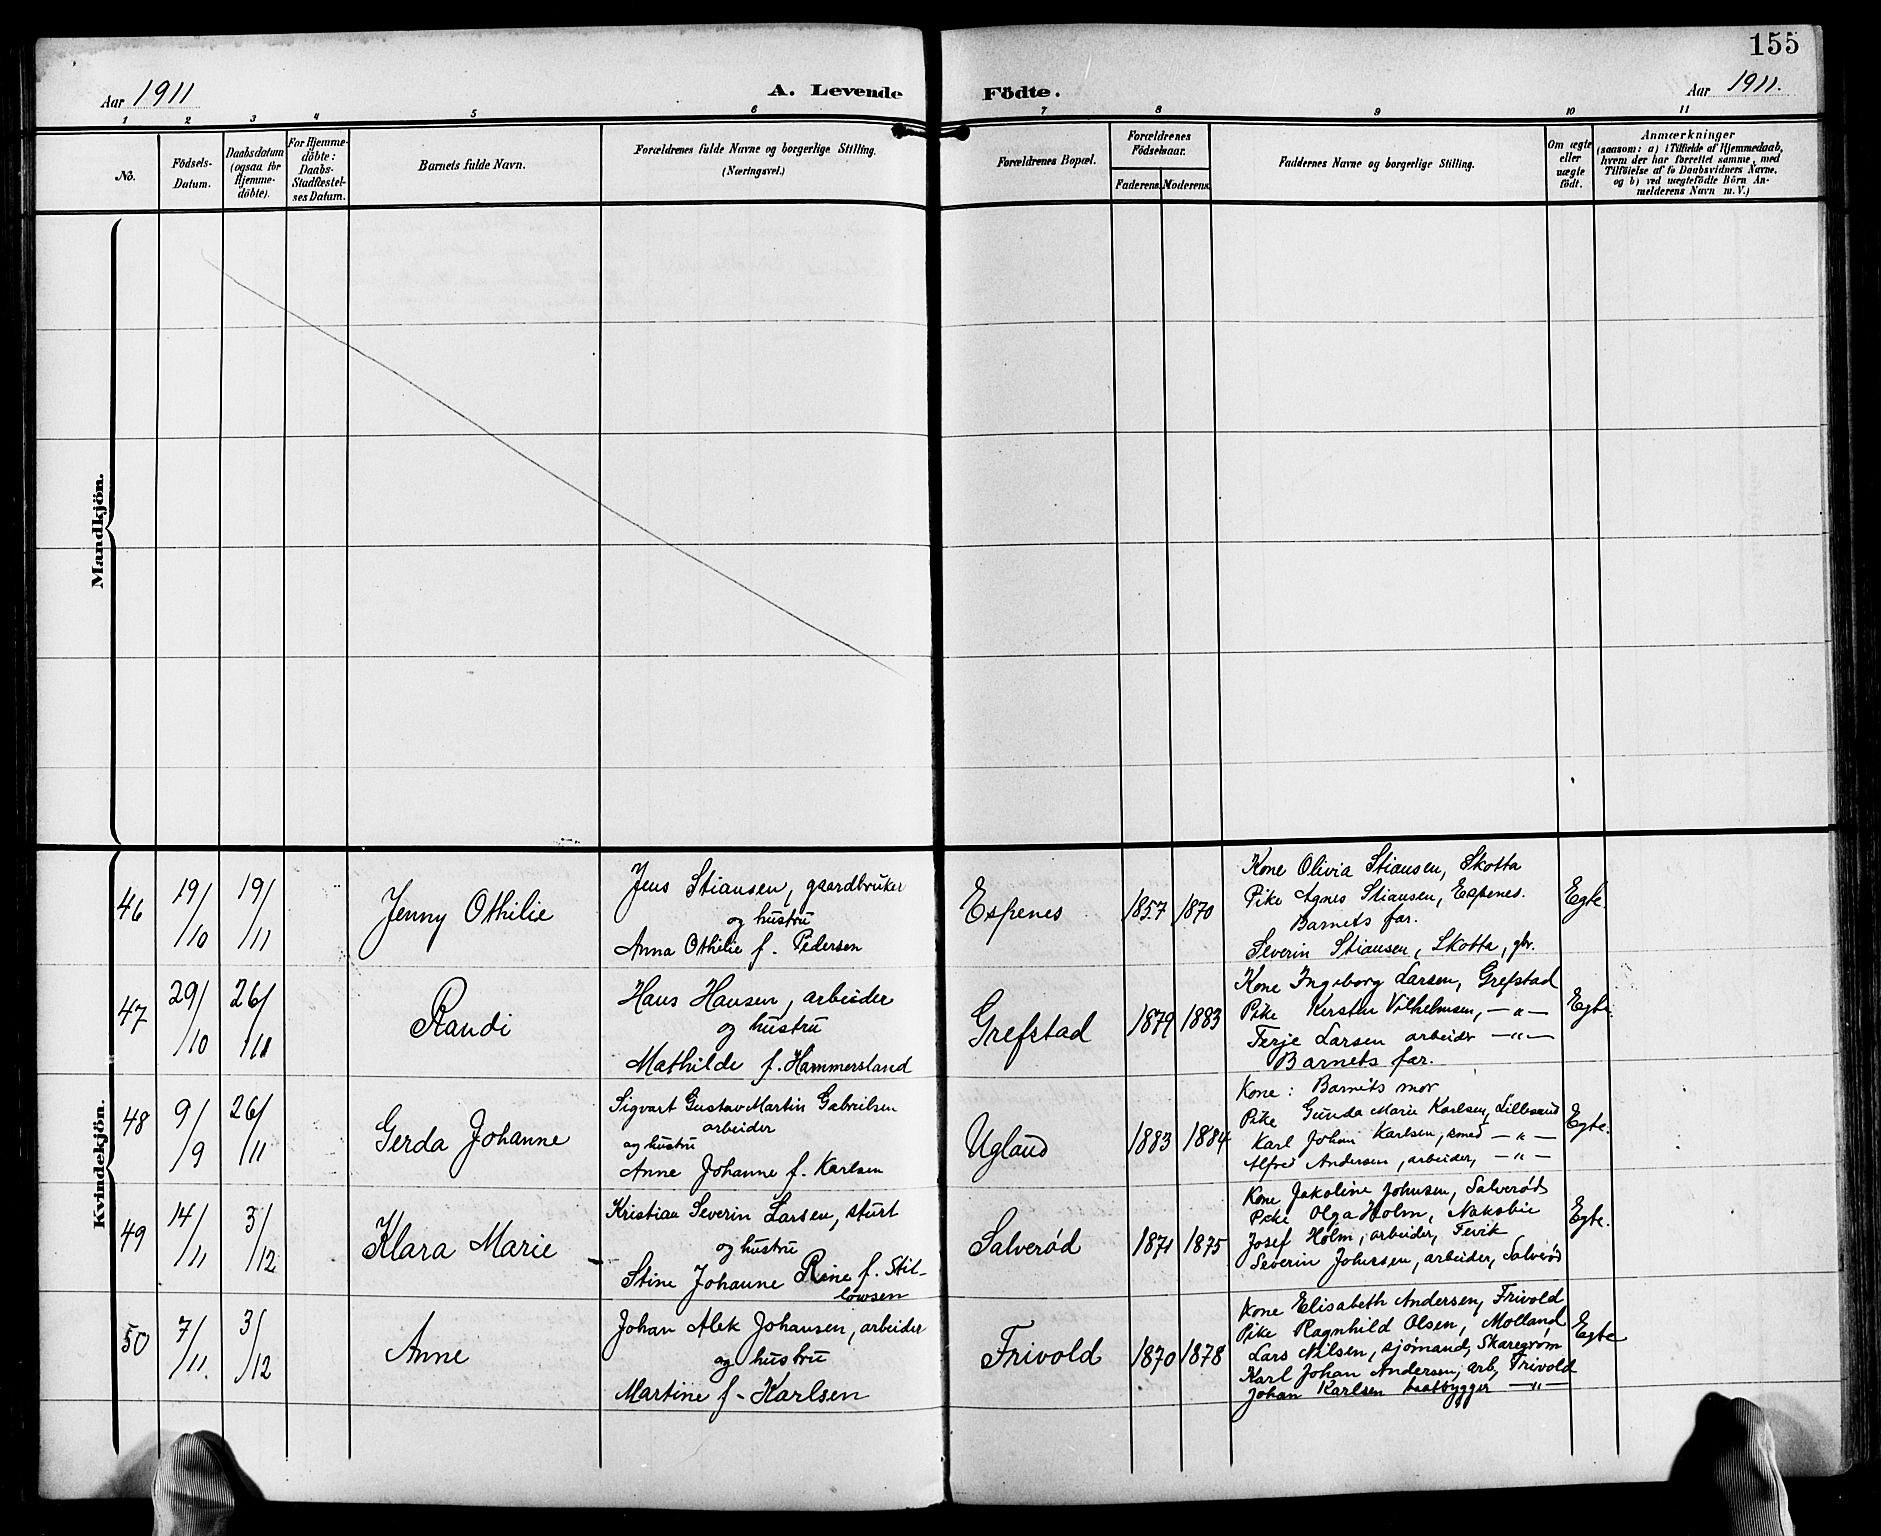 155
Aar 1911
A. Levende
Födte.
Aar 1911.
1 2 3 4 5 6 7 8 9 10 11
No.
Födsels-
Datum.
Daabsdatum
(ogsaa for
Hjemme-
döbte).
For Hjemme-
döbte:
Daabs-
Stadfestel-
ses Datum.
Barnets fulde Navn.
Forældrenes fulde Navne og borgerlige Stilling.
(Næringsvei.)
Forældrenes Bopæl.
Forældrenes
Födselsaar.
Faderens.
Moderens.
Faddernes Navne og borgerlige Stilling.
Om ægte
eller
uægte
födt.
Anmærkninger
(saasom: a) i Tilfælde af Hjemmedaab,
hvem der har forrettet samme, med
Tilföielse af to Daabsvidners Navne,
og b) ved uægtefödte Börn An-
melderens Navn m. V.)
Mandkjön.
Kvindekjön.
46
19/10
19/11
Jenny Othilie
Jens Stiansen, gaardbruker
og hustru
Anna Othilie f. Pedersen
Espenes
1857
1870
Kone Olivia Stiansen, Skotta
Pike Agnes Stiansen, Espenes.
Barnets far.
Severin Stiansen, Skotta, gbr.
Egte.
47
29/10
26/11
Randi
Hans Hansen, arbeider
og hustru
Mathilde f. Hammersland
Grefstad
1879
1883
Kone Ingeborg Larsen, Grefstad
Pike Kersten Vilhelmsen, — " —
Terje Larsen arbeider — " —
Barnets far.
Egte.
48
9/9
26/11
Gerda Johanne
Sigvart Gustav Martin Gabrielsen
arbeider
og hustru
Anne Johanne f. Karlsen
Ugland
1883
1884
Kone: Barnets mor
Pike Gunda Marie Karlsen, Lillesand
Karl Johan Karlsen, smed — " —
Alfred Andersen, arbeider, — " —
Egte.
49
14/11
3/12
Klara Marie
Kristian Severin Larsen, sturt
og hustru
Stine Johanne Rine f. Stil-
lowsen
Salverød
1871
1875
Kone Jakoline Johnsen, Salverød
Pike Olga Holm,
Josef Holm, arbeider, Fevik
Severin Johnsen, arbeider, Salverød
Egte.
50
7/11.
3/12
Anne
Johan Alek Johansen, arbeider
og hustru
Martine f. Karlsen
Frivold
1870
1878
Kone Elisabeth Andersen, Frivold
Pike Ragnhild Olsen, Molland
Lars Nilsen, sjømand, Skaregrøm
Karl Johan Andersen, arb, Frivold
Johan Karlsen baatbygger — " —
Egte